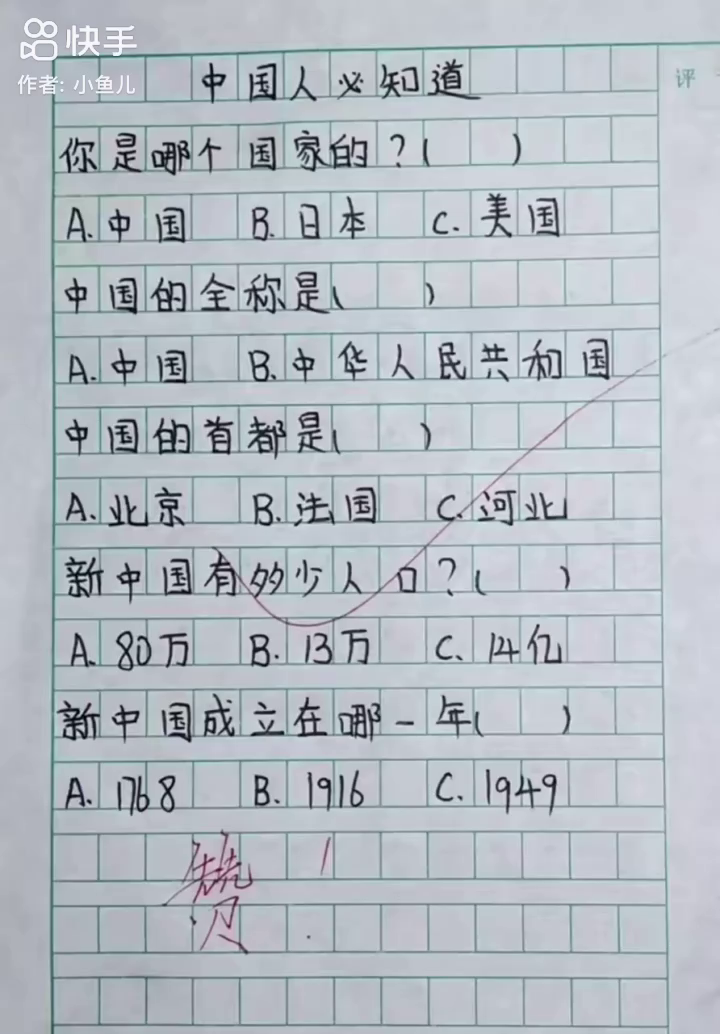 快手
作者: 小鱼儿
评
中国人必知道
你是哪个国家的?( )
A.中国 B.日本 C.美国
中国的全称是( )
A.中国 B.中华人民共和国
中国的首都是( )
A.北京 B.法国 C.河北
新中国有多少人口?( )
A.80万 B.13万 C.14亿
新中国成立在哪一年( )
A.1768 B.1916 C.1949
赞!